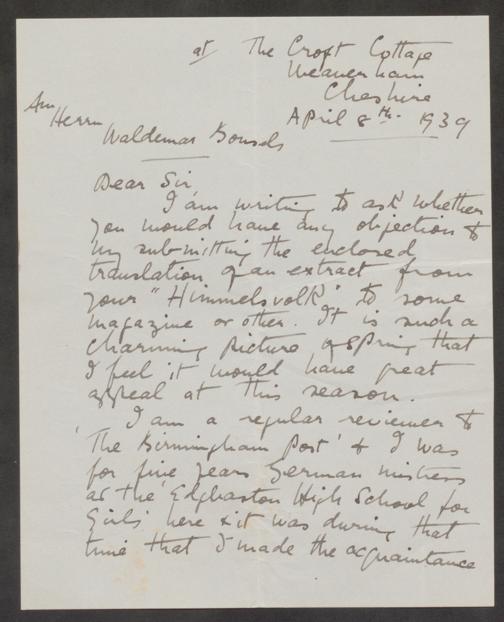 at The Croft Cottage
Weaverham
Cheshire
April 8th. 1939
An
Herrn
Waldemar Bonsels
Dear Sir,
I am writing to ask whether
you would have any objection to
my submitting the enclosed
translation of an extract from
your "Himmelsvolk" to some
magazine or other. It is such a
charming picture of Spring that
I feel it would have great
appeal at this season.
I am a regular reviewer to
'The Birmingham Post' & I was
for five years German mistress
at the Edgbaston High School for
Girls here & it was during that
time that I made the acquaintance